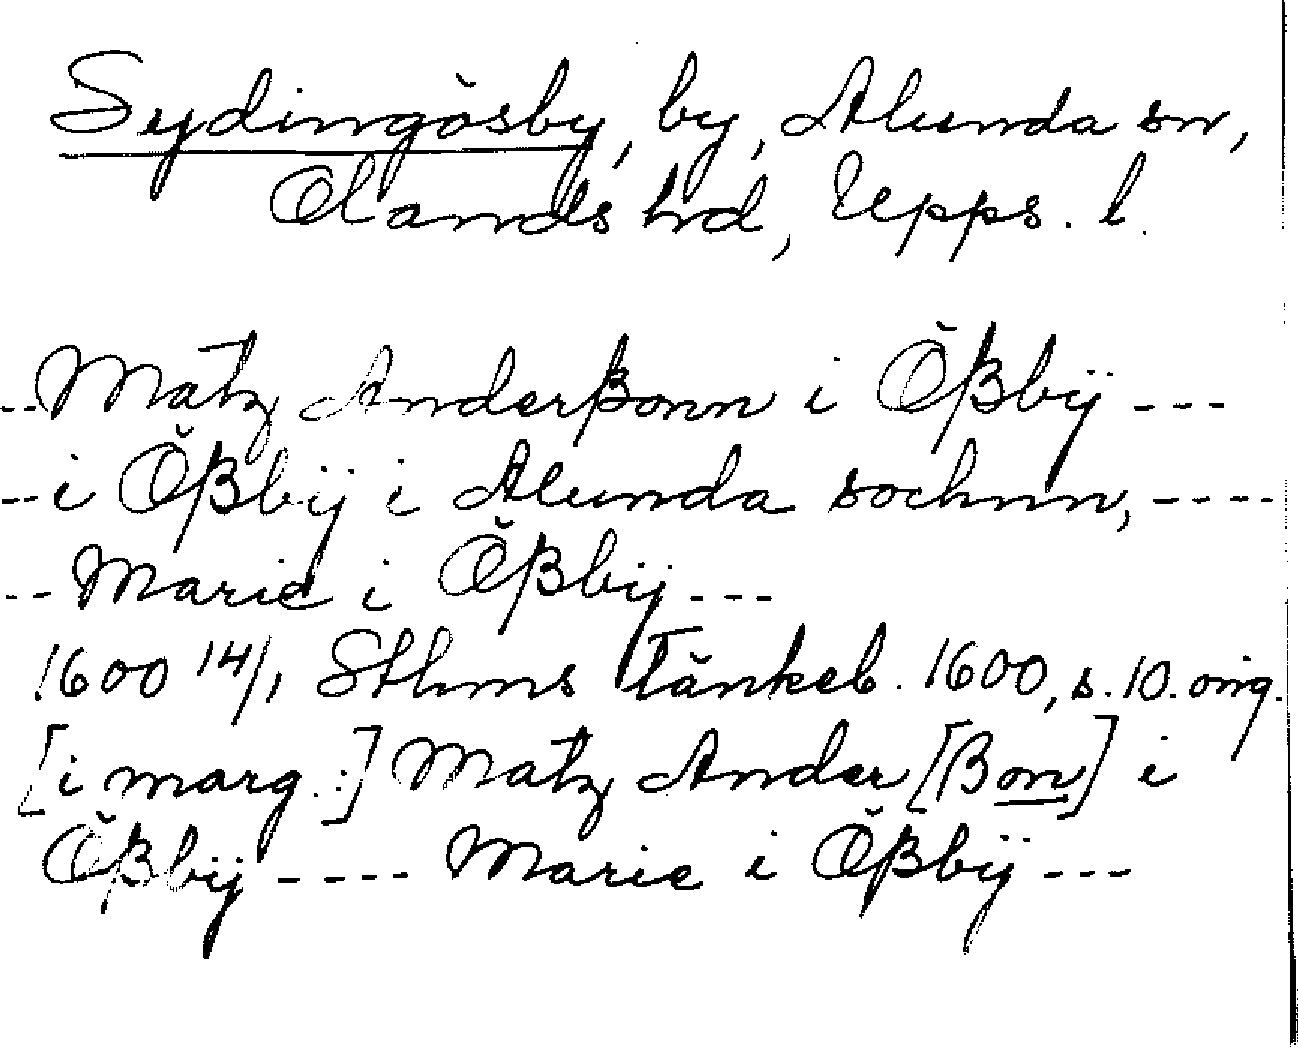 Sydingösby, by, Alunda sn,
Olands hd, Upps. l.
--Matz Anderßonn i Ößbÿ ---
--i Ößbÿ i Alunda sochnn, ----
--Marie i Ößbÿ ---
1600 14/1 Sthms Tänkeb. 1600, s. 10. orig.
[i marg.:] Matz Ander[ßon] i
Ößbÿ ---- Marie i Ößbÿ ---